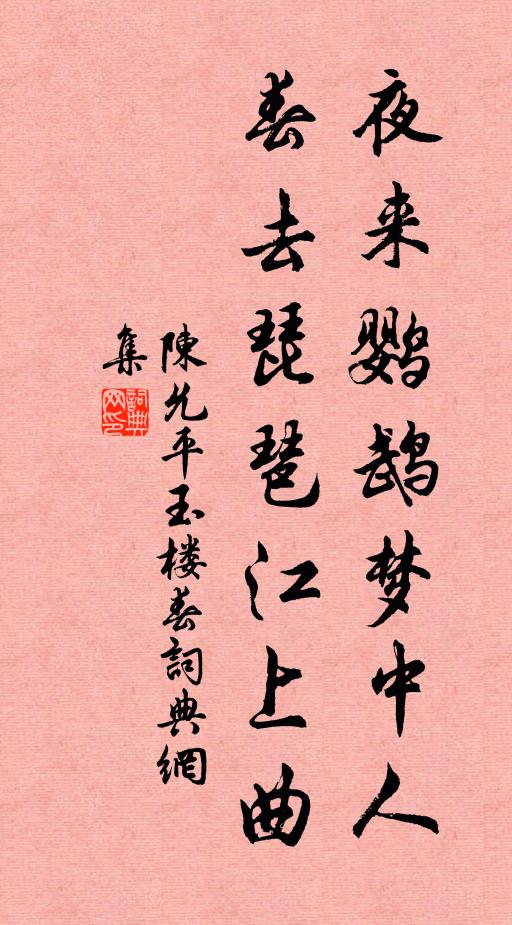 夜来鹦鹉梦中人
春去琵琶江上曲
陳允平玉楼春詞典網
集
詞典网印